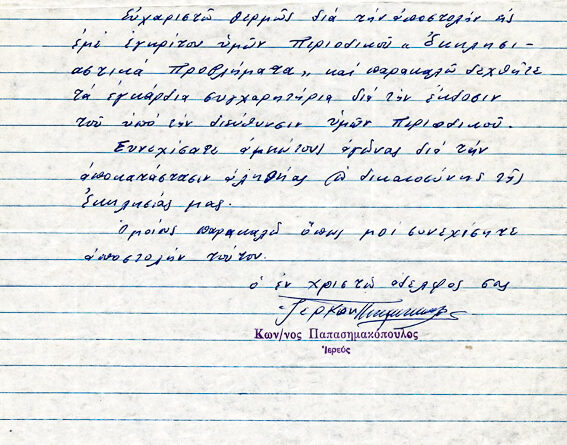 Εὐχαριστῶ θερμῶς διά τήν ἀποστολήν εἰς
ἐμέ ἐγκρίτου ὑμῶν Περιοδικοῦ "Ἐκκλησι-
αστικά Προβλήματα" καί παρακαλῶ δεχθῆτε
τά ἐγκάρδια συγχαρητήρια διά τήν ἔκδοσιν
τοῦ ὑπό τήν διεύθυνσιν ὑμῶν Περιοδικοῦ.
Συνεχίσατε ἀγῶνας διά τήν
ἀποκατάστασιν ἀληθείας δικαιοσύνης τῆς
Ἐκκλησίας μας.
Ὁμοίως παρακαλῶ ὅπως μοί συνεχίσητε
ἀποστολήν τούτου.
ὁ ἐν Χριστῷ ἀδελφός σας
Κων/νος Παπασημακόπουλος
Ἱερεύς